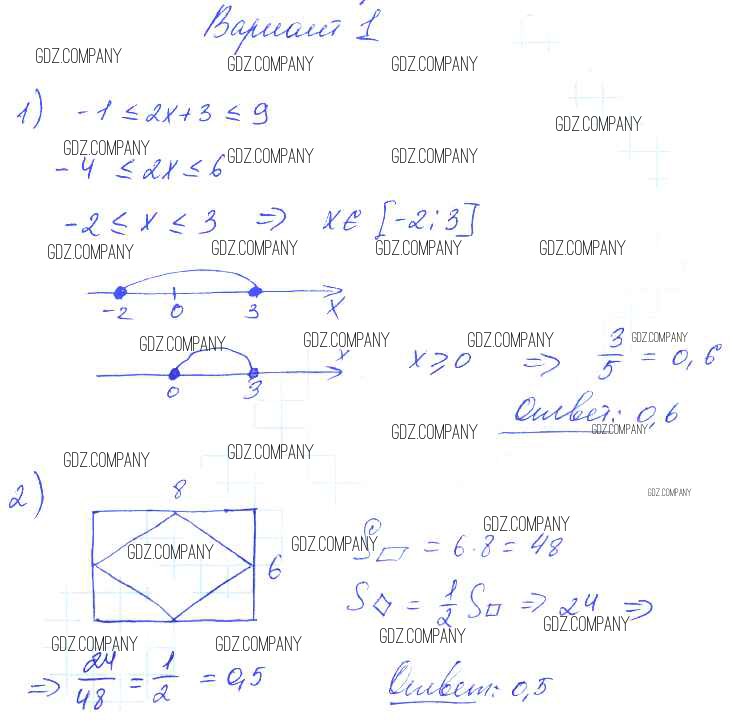 Вариант 1
GDZ.COMPANY GDZ.COMPANY GDZ.COMPANY
1) -1 ≤ 2x+3 ≤ 9
GDZ.COMPANY
GDZ.COMPANY GDZ.COMPANY GDZ.COMPANY
-4 ≤ 2x ≤ 6
-2 ≤ x ≤ 3 => x∈ [-2; 3]
GDZ.COMPANY GDZ.COMPANY GDZ.COMPANY GDZ.COMPANY
-2 0 3 x
GDZ.COMPANY GDZ.COMPANY GDZ.COMPANY GDZ.COMPANY
x
0 3
x ≥ 0 => 3/5 = 0,6
Ответ: 0,6
GDZ.COMPANY GDZ.COMPANY
GDZ.COMPANY GDZ.COMPANY
2)
8
GDZ.COMPANY
GDZ.COMPANY
GDZ.COMPANY GDZ.COMPANY
6
S▱ = 6·8 = 48
S◇ = 1/2 S▱ => 24 =>
GDZ.COMPANY
GDZ.COMPANY GDZ.COMPANY GDZ.COMPANY
=> 24/48 = 1/2 = 0,5
Ответ: 0,5